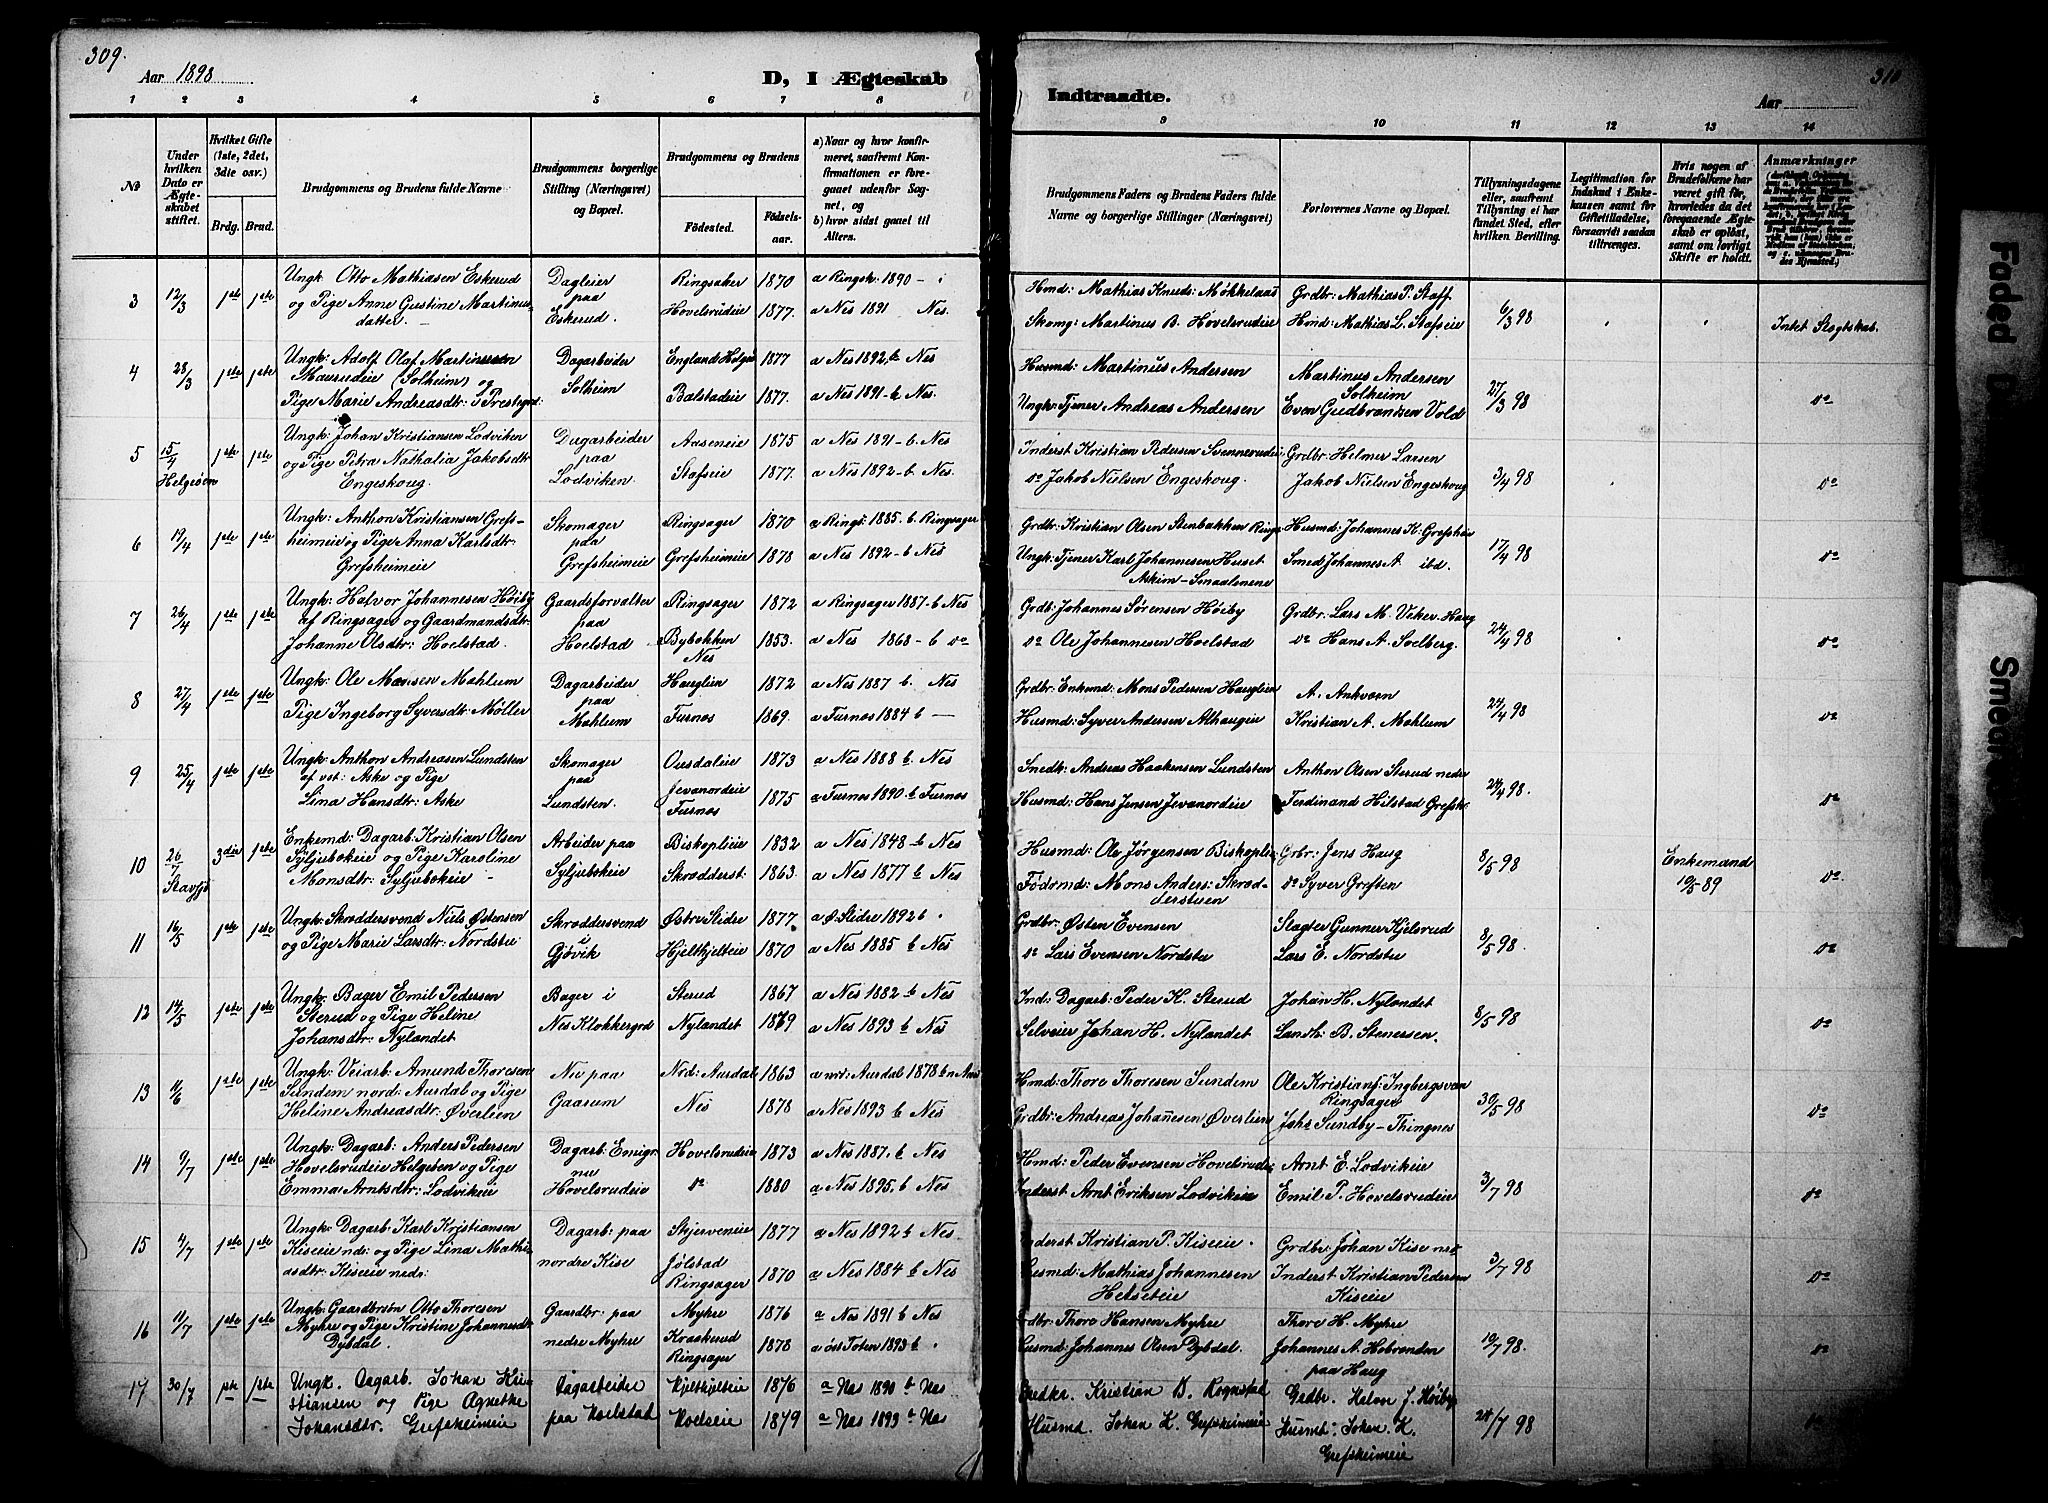 309.
Aar 1898
D, I Ægteskab
1 2 3 4 5 6 7 8
No
Under hvilken Dato er Ægteskabet stiftet.
Hvilket Gifte (1ste, 2det, 3die osv.)
Brdg. Brud.
Brudgommens og Brudens fulde Navne
Brudgommens borgerlige Stilling (Næringsvei) og Bopæl.
Brudgommens og Brudens
Fødested.
Fødselsaar.
a) Naar og hvor konfirmeret, saafremt Konfirmationen er foregaaet udenfor Sognet, og
b) hvor sidst gaaet til Alters.
3 12/3 1ste 1ste
Ungk Otto Mathiasen Eskerud
og Pige Anne Gustine Martinusdatter.
Dagleier paa Eskerud.
Ringsaker 1870 a Ringsk. 1890
Hovelsrudeie 1877. a Nes 1891 Nes.
4 28/3 1ste 1ste
Ungk: Adolf Olaf Martinusen
Maurudeie (Solheim) og
Pige Marie Andreasdtr: i Prestegrd:
Dagarbeider Solheim
England: Helgø 1877 a Nes 1892, b Nes
Balstadeie 1877. a Nes 1891 - b Nes.
5 15/4 Helgeøen 1ste 1ste
Ungk: Johan Kristiansen Lodviken
og Pige Petra Nathalia Jakobsdtr
Engeskoug.
Dagarbeider paa Lodviken.
Aaseneie 1875 a Nes 1891 - b. Nes
Stafseie 1877. a Nes 1892 - b Nes
6 19/4 1ste 1ste
Ungk: Anthon Kristiansen Grefsheimeie
og Pige Anna Karlsdtr:
Grefsheimeie
Skomager paa Grefsheimeie
Ringsager 1870 a Rings: 1885 - b. Ringsager
Grefsheimeie 1878 a Nes 1892 - b Nes
7 26/4 1ste 1ste
Ungk: Halvor Johannesen Høiby
af Ringsager og Gaardmandsdtr:
Johanne Olsdtr: Hoelstad.
Gaardsforvalter paa Hoelstad
Ringsager 1872 a Ringsager 1887 - b Nes
Bybakken Nes 1853. a Nes 1868 - b do
8 27/4 1ste 1ste
Ungk: Ole Monsen Mahlum
Pige Ingeborg Syversdtr: Møller
Dagarbeider paa Mahlum
Hauglien 1872 a Nes 1887 b. Nes
Furnes 1869. a Furnes 1884 b —
9 25/4 1ste 1ste
Ungk: Anthon Andreasen Lundsten
af vet: Aske og Pige
Lina Hansdtr: Aske
Skomager paa Lundsten.
Ousdaleie 1873 a Nes 1888 b. Nes
Jevanordeie Furnes 1875 a Furnes 1890 - b Furnes
10 26/7 Stavsjø 3die 1ste
Enkemd: Dagarb: Kristian Olsen
Syljubokeie og Pige Karoline
Monsdtr: Syljubokeie -
Arbeider paa Syljubokeie
Biskoplieie 1832 a Nes 1848 b Nes
Skrædderst: 1863. a Nes 1877 b Nes
11 16/5 1ste 1ste
Ungk: Skræddersvend Niels Østensen
og Pige Marie Larsdtr: Nordstu:
Skræddersvend i Gjøvik
Østre Slidre 1877 a Ø. Slidre 1892 b .
Hjeltkjelteie 1870 a Nes 1885 b Nes
12 14/5 1ste 1ste
Ungk: Bager Emil Pedersen
Sterud og Pige Heline
Johansdtr: Nylandet
Bager i Nes Klokkergrd
Sterud 1867 a Nes 1882 b Nes
Nylandet 1879 a Nes 1893 b Nes
13 11/6 1ste 1ste
Ungk: Veiarb: Amund Thoresen
Sundem nord: Aurdal og Pige
Heline Andreasdtr: Øverlien
Nu paa Gaarum
Nod: Aurdal 1863 a nrd: Aurdal 1878 b n Aurd
Nes 1878 a Nes 1893 b Nes
14 9/7 1ste 1ste
Ungk: Dagarb: Anders Pedersen
Hovelsrudeie Helgøen og Pige
Emma Arntsdtr: Lodvikeie
Dagarb: Emigr. nu Hovelsrudeie
Hovelsrudeie 1873 a Nes 1887. b Nes
do 1880 a Nes 1895. b Nes
15 4/7 1ste 1ste
Ungk: Dagarb: Karl Kristiansen
Kiseeie nds: og Pige Lina Mathiasdtr:
Kiseeie neds:
Dagarb: paa nordre Kise
Stjerveneie 1877 a Nes 1892 b Nes
Jølstad Ringsager 1870 a Nes 1884 b Nes
16 11/7 1ste 1ste
Ungk: Gaardbrsøn Otto Thoresen
Myhre og Pige Kristine Johannesdtr
Dybdal.
Gaardbr: paa nedre Myhre
Myhre 1876 a Nes 1891 b Nes
Kraakerud Ringsager 1878 a øst Toten 1893 b .
17 30/7 1ste 1ste
Ungk. Dagarb. Johan Kristiansen
og Pige Agnethe
Johansdtr. Grefsheimeie
Dagarbeider paa Hoelstad
Hjeltkjelteie 1876 a Nes 1890 b Nes
Hoelseie 1879 a Nes 1893 b Nes
310
Indtraadte.
Aar
9 10 11 12 13 14
Brudgommens Faders og Brudens Faders fulde Navne og borgerlige Stillinger (Næringsvei)
Forlovernes Navne og Bopæl.
Tillysningsdagene eller, saafremt Tillysning ei har fundet Sted, efter hvilken Bevilling.
Legitimation for Indskud i Enkekassen samt for Giftetilladelse, forsaavidt saadan tiltrænges.
Hvis nogen af Brudefolkene har været gift før, hvorledes da det foregaaende Ægteskab er opløst, samt om lovligt Skifte er holdt.
Anmærkninger
Hmd: Mathias Knuds: Møkkelaas Grdbr: Mathias P. Staff
Skomg: Martinus B. Hovelsrudeie Hmd: Mathias L. Stafseie
6/3 98 Intet Slægtskab.
Husmd: Martinus Andersen Martinus Andersen Solheim
Ungk: Tjener Andreas Andersen Even Gudbrandsen Vold
27/3 98 do
Inderst Kristian Pedersen Svennerudeie Grdbr: Helmer Larsen
do Jakob Nielsen Engeskoug. Jakob Nielsen Engeskoug
3/4 98 do
Grdbr: Kristian Olsen Stenbakken Rings Husmd: Johannes K. Grefsheim
Ungk: Tjener Karl Johannesen Huset Smed Johannes A. ibd.
Askim - Smaalenene
17/4 98 do
Grdb: Johannes Sørensen Høiby Grdbr: Lars M. Veker. Haug
do Ole Johannesen Hoelstad do Hans A. Soelberg.
24/4 98 do
Grdbr: Enkemd: Mons Pedersen Hauglien A. Ankvern
Husmd: Syver Andersen Alhaugeie Kristian A. Mahlum
24/4 98 do
Snedk: Andreas Haakensen Lundsten Anthon Olsen Sterud nedre
Husmd: Hans Jensen Jevanordeie Ferdinand Hilstad Grefsh.
24/4 98. do
Husmd: Ole Jørgensen Biskoplie: Grbr: Jens Haug
Fødrmd: Mons Anders: Skræddersteen do Syver Greften
8/5 98 Enkemand 10/5 89 do
Grdbr: Østen Evensen Slagter Gunner Kjelsrud
do Lars Evensen Nordstu Lars E. Nordstu
8/5 98 do
Ind: Dagarb: Peder K. Sterud Johan H. Nylandet
Selveier Johan H. Nylandet Landh: B. Stenersen.
8/5 98 do
Hmd: Thore Thoresen Sundem Ole Kristians: Ingbergsveen Ringsager
Grdbr: Andreas Johannesen Øverlien Johs Sundby - Thingnes
30/5 98 do
Hmd: Peder Evensen Hovelsrudeie Arnt E. Lodvikeie
Inderst Arnt Eriksen Lodvikeie Emil P. Hovelsrudeie
3/7 98 do
Inderst Kristian P. Kiseeie . Grdbr: Johan Kise ned
Husmd: Mathias Johannesen Helseteie Inderst Kristian Pedersen Kiseeie
3/7 98 do
Grdbr: Thore Hansen Myhre Thore H. Myhre
Husmd: Johannes Olsen Dybdal. Johannes A. Hobrenden paa Haug
10/7 98. do
Gredkr. Kristian B. Rognstad Grdbr. Helon J. Høiby
Husmd. Johan K. Grefsheimeie Husmd: Johan K. Grefsheimeie
24/7 98
Faded